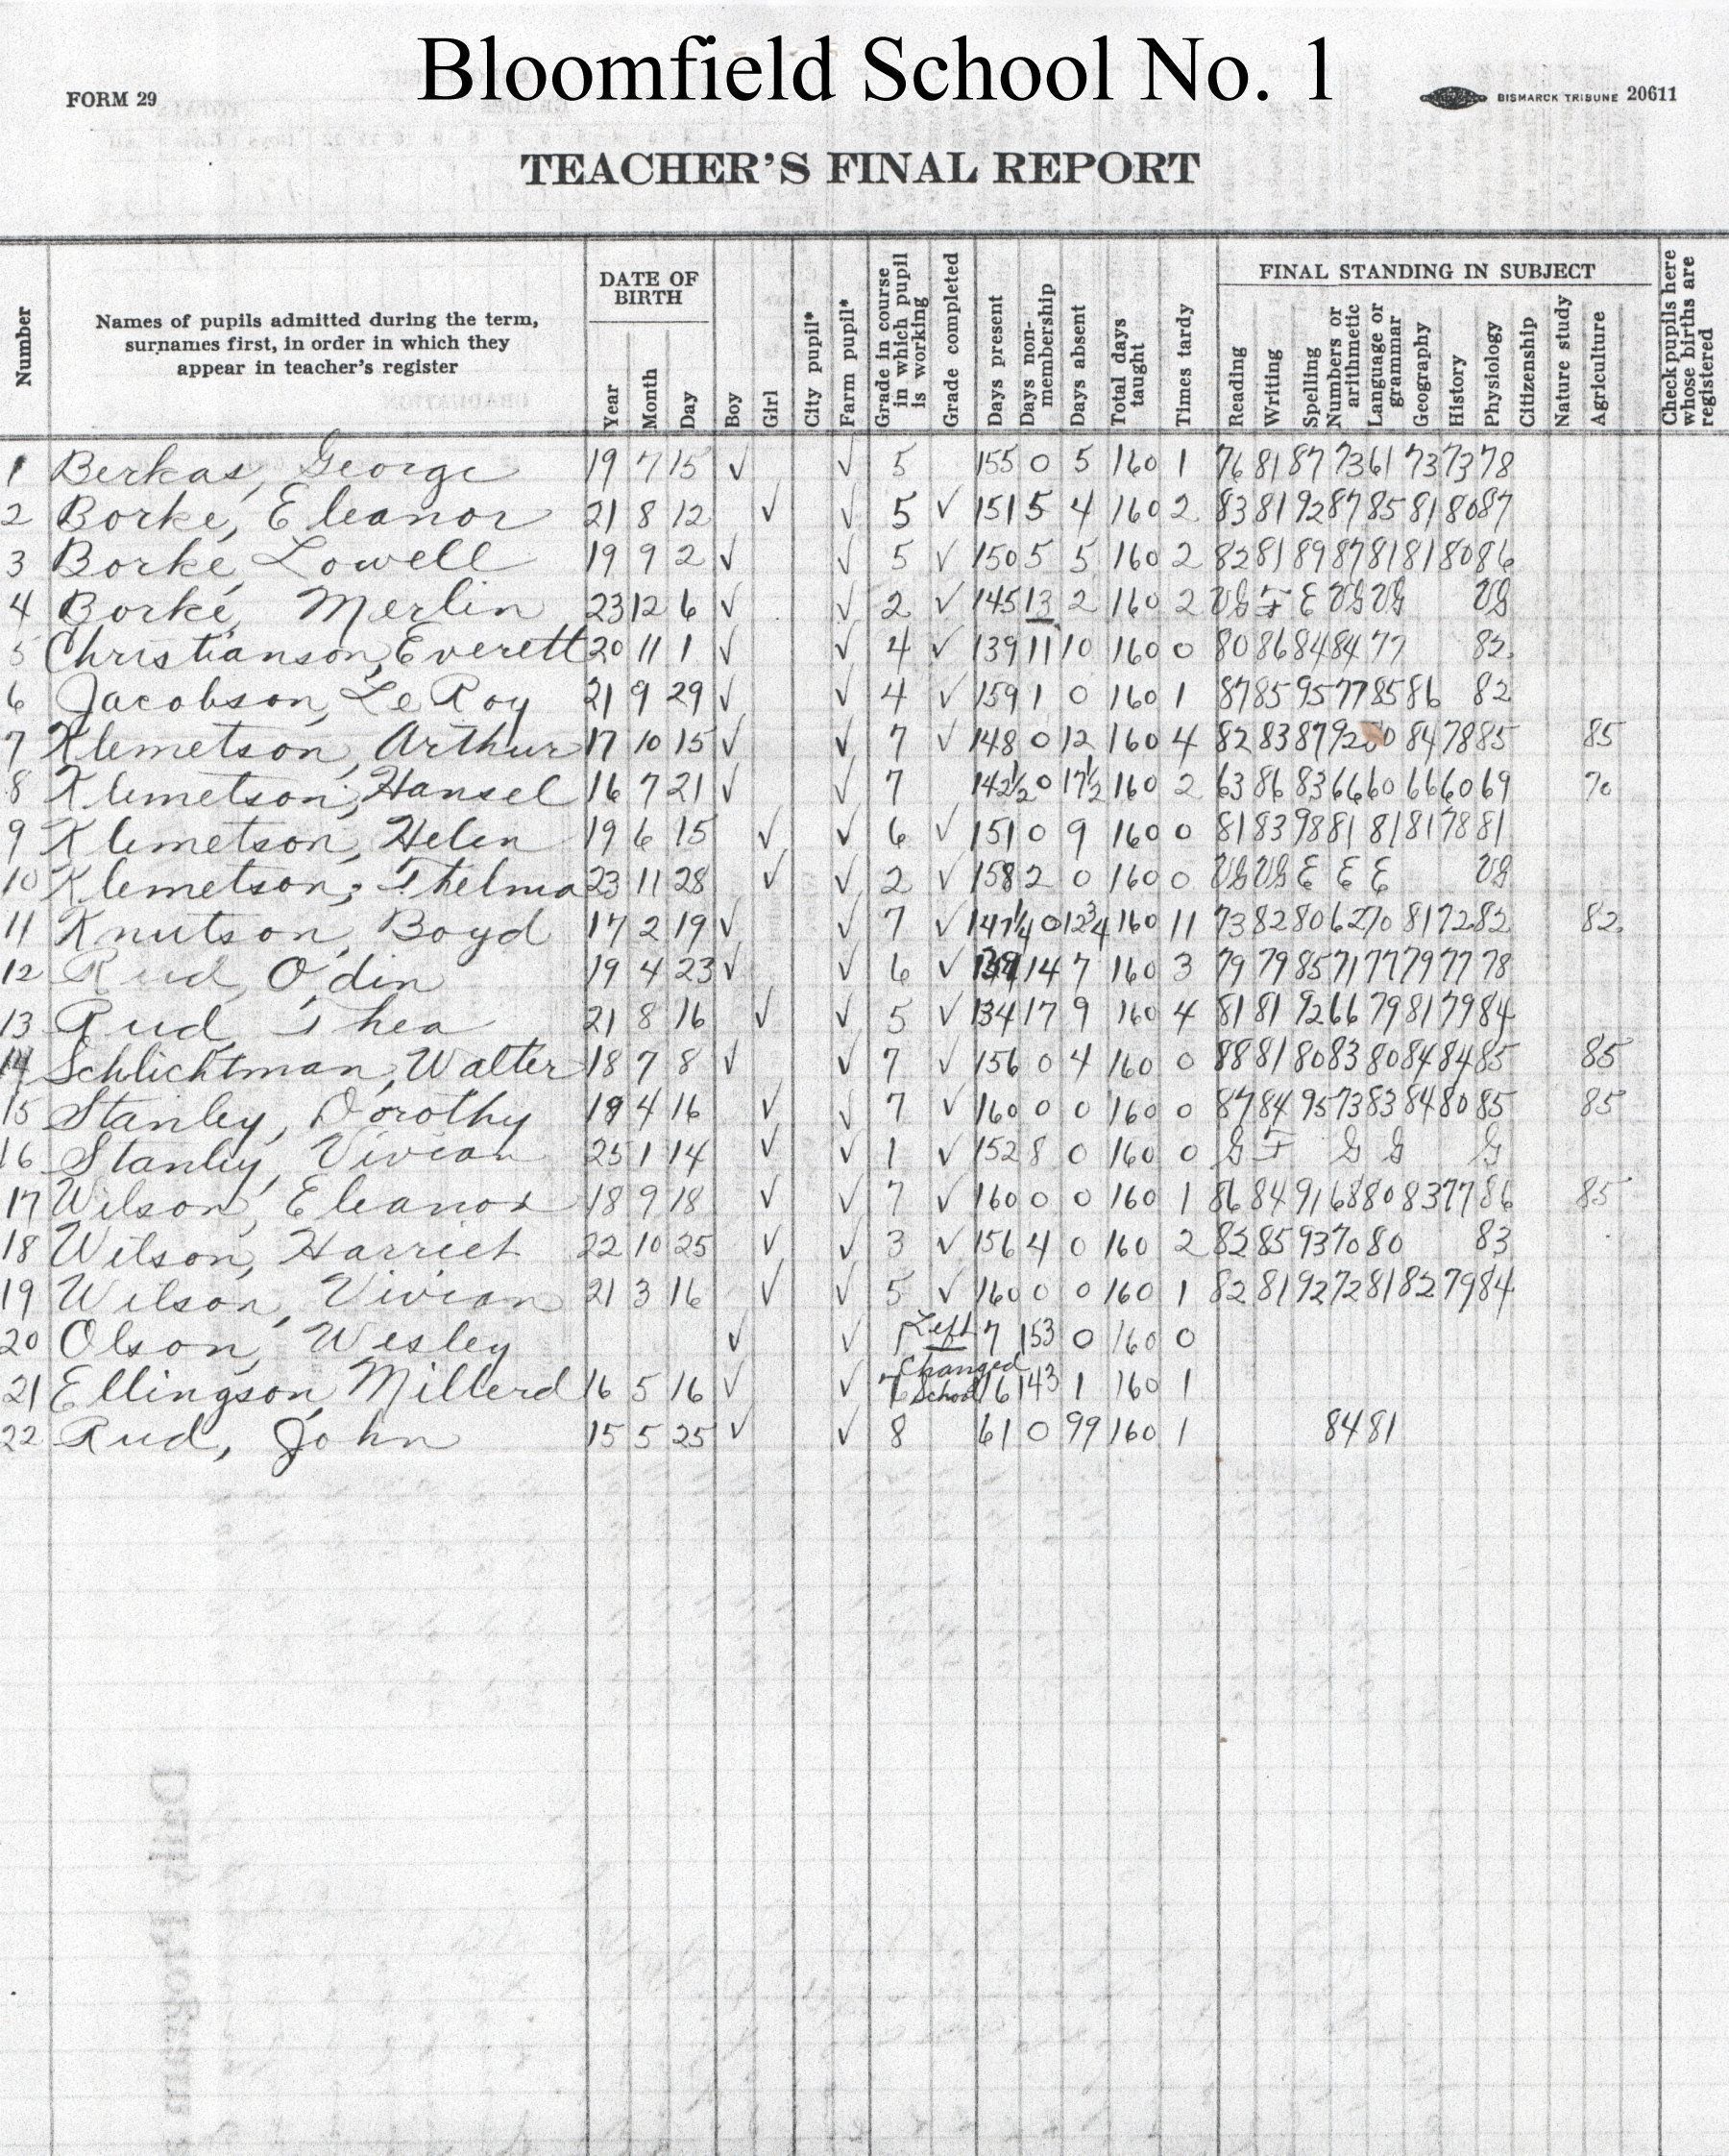 Bloomfield School No. 1
FORM 29
BISMARCK TRIBUNE 20611
TEACHER'S FINAL REPORT
Number
Names of pupils admitted during the term, surnames first, in order in which they appear in teacher's register
DATE OF BIRTH
Year
Month
Day
Boy
Girl
City pupil*
Farm pupil*
Grade in course in which pupil is working
Grade completed
Days present
Days non-membership
Days absent
Total days taught
Times tardy
FINAL STANDING IN SUBJECT
Reading
Writing
Spelling
Numbers or arithmetic
Language or grammar
Geography
History
Physiology
Citizenship
Nature study
Agriculture
Check pupils here whose births are registered
1 Berkas, George 19 7 15 ✓ ✓ 5 155 0 5 160 1 76 81 87 73 61 73 73 78
2 Borke, Eleanor 21 8 12 ✓ ✓ 5 ✓ 151 5 4 160 2 83 81 92 87 85 81 80 87
3 Borke, Lowell 19 9 2 ✓ ✓ 5 ✓ 150 5 5 160 2 82 81 89 87 81 81 80 86
4 Borke, Merlin 23 12 6 ✓ ✓ 2 ✓ 145 13 2 160 2 VG F E VG VG VG
5 Christianson, Everett 20 11 1 ✓ ✓ 4 ✓ 139 11 10 160 0 80 86 84 84 77 82
6 Jacobson, LeRoy 21 9 29 ✓ ✓ 4 ✓ 159 1 0 160 1 87 85 95 77 85 86 82
7 Klemetson, Arthur 17 10 15 ✓ ✓ 7 ✓ 148 0 12 160 4 82 83 87 92 84 78 85 85
8 Klemetson, Hansel 16 7 21 ✓ ✓ 7 142½ 0 17½ 160 2 63 86 83 66 60 66 60 69 70
9 Klemetson, Helen 19 6 15 ✓ ✓ 6 ✓ 151 0 9 160 0 81 83 98 81 81 81 78 81
10 Klemetson, Thelma 23 11 28 ✓ ✓ 2 ✓ 158 2 0 160 0 VG VG E E E VG
11 Knutson, Boyd 17 2 19 ✓ ✓ 7 ✓ 147¼ 0 12¾ 160 11 73 82 80 62 70 81 72 82 82
12 Rud, Odin 19 4 23 ✓ ✓ 6 ✓ 139 14 7 160 3 79 79 85 71 77 79 77 78
13 Rud, Thea 21 8 16 ✓ ✓ 5 ✓ 134 17 9 160 4 81 81 92 66 79 81 79 84
14 Schlichtman, Walter 18 7 8 ✓ ✓ 7 ✓ 156 0 4 160 0 88 81 80 83 80 84 84 85 85
15 Stanley, Dorothy 19 4 16 ✓ ✓ 7 ✓ 160 0 0 160 0 87 84 95 73 83 84 80 85 85
16 Stanley, Vivian 25 1 14 ✓ ✓ 1 ✓ 152 8 0 160 0 G F G G G
17 Wilson, Eleanor 18 9 18 ✓ ✓ 7 ✓ 160 0 0 160 1 86 84 91 68 80 83 77 86 85
18 Wilson, Harriet 22 10 25 ✓ ✓ 3 ✓ 156 4 0 160 2 82 85 93 70 80 83
19 Wilson, Vivian 21 3 16 ✓ ✓ 5 ✓ 160 0 0 160 1 82 81 92 72 81 82 79 84
20 Olson, Wesley ✓ ✓ 1 Left 7 153 0 160 0
21 Ellingson, Millerd 16 5 16 ✓ ✓ Changed School 16 143 1 160 1
22 Rud, John 15 5 25 ✓ ✓ 8 61 0 99 160 1 84 81